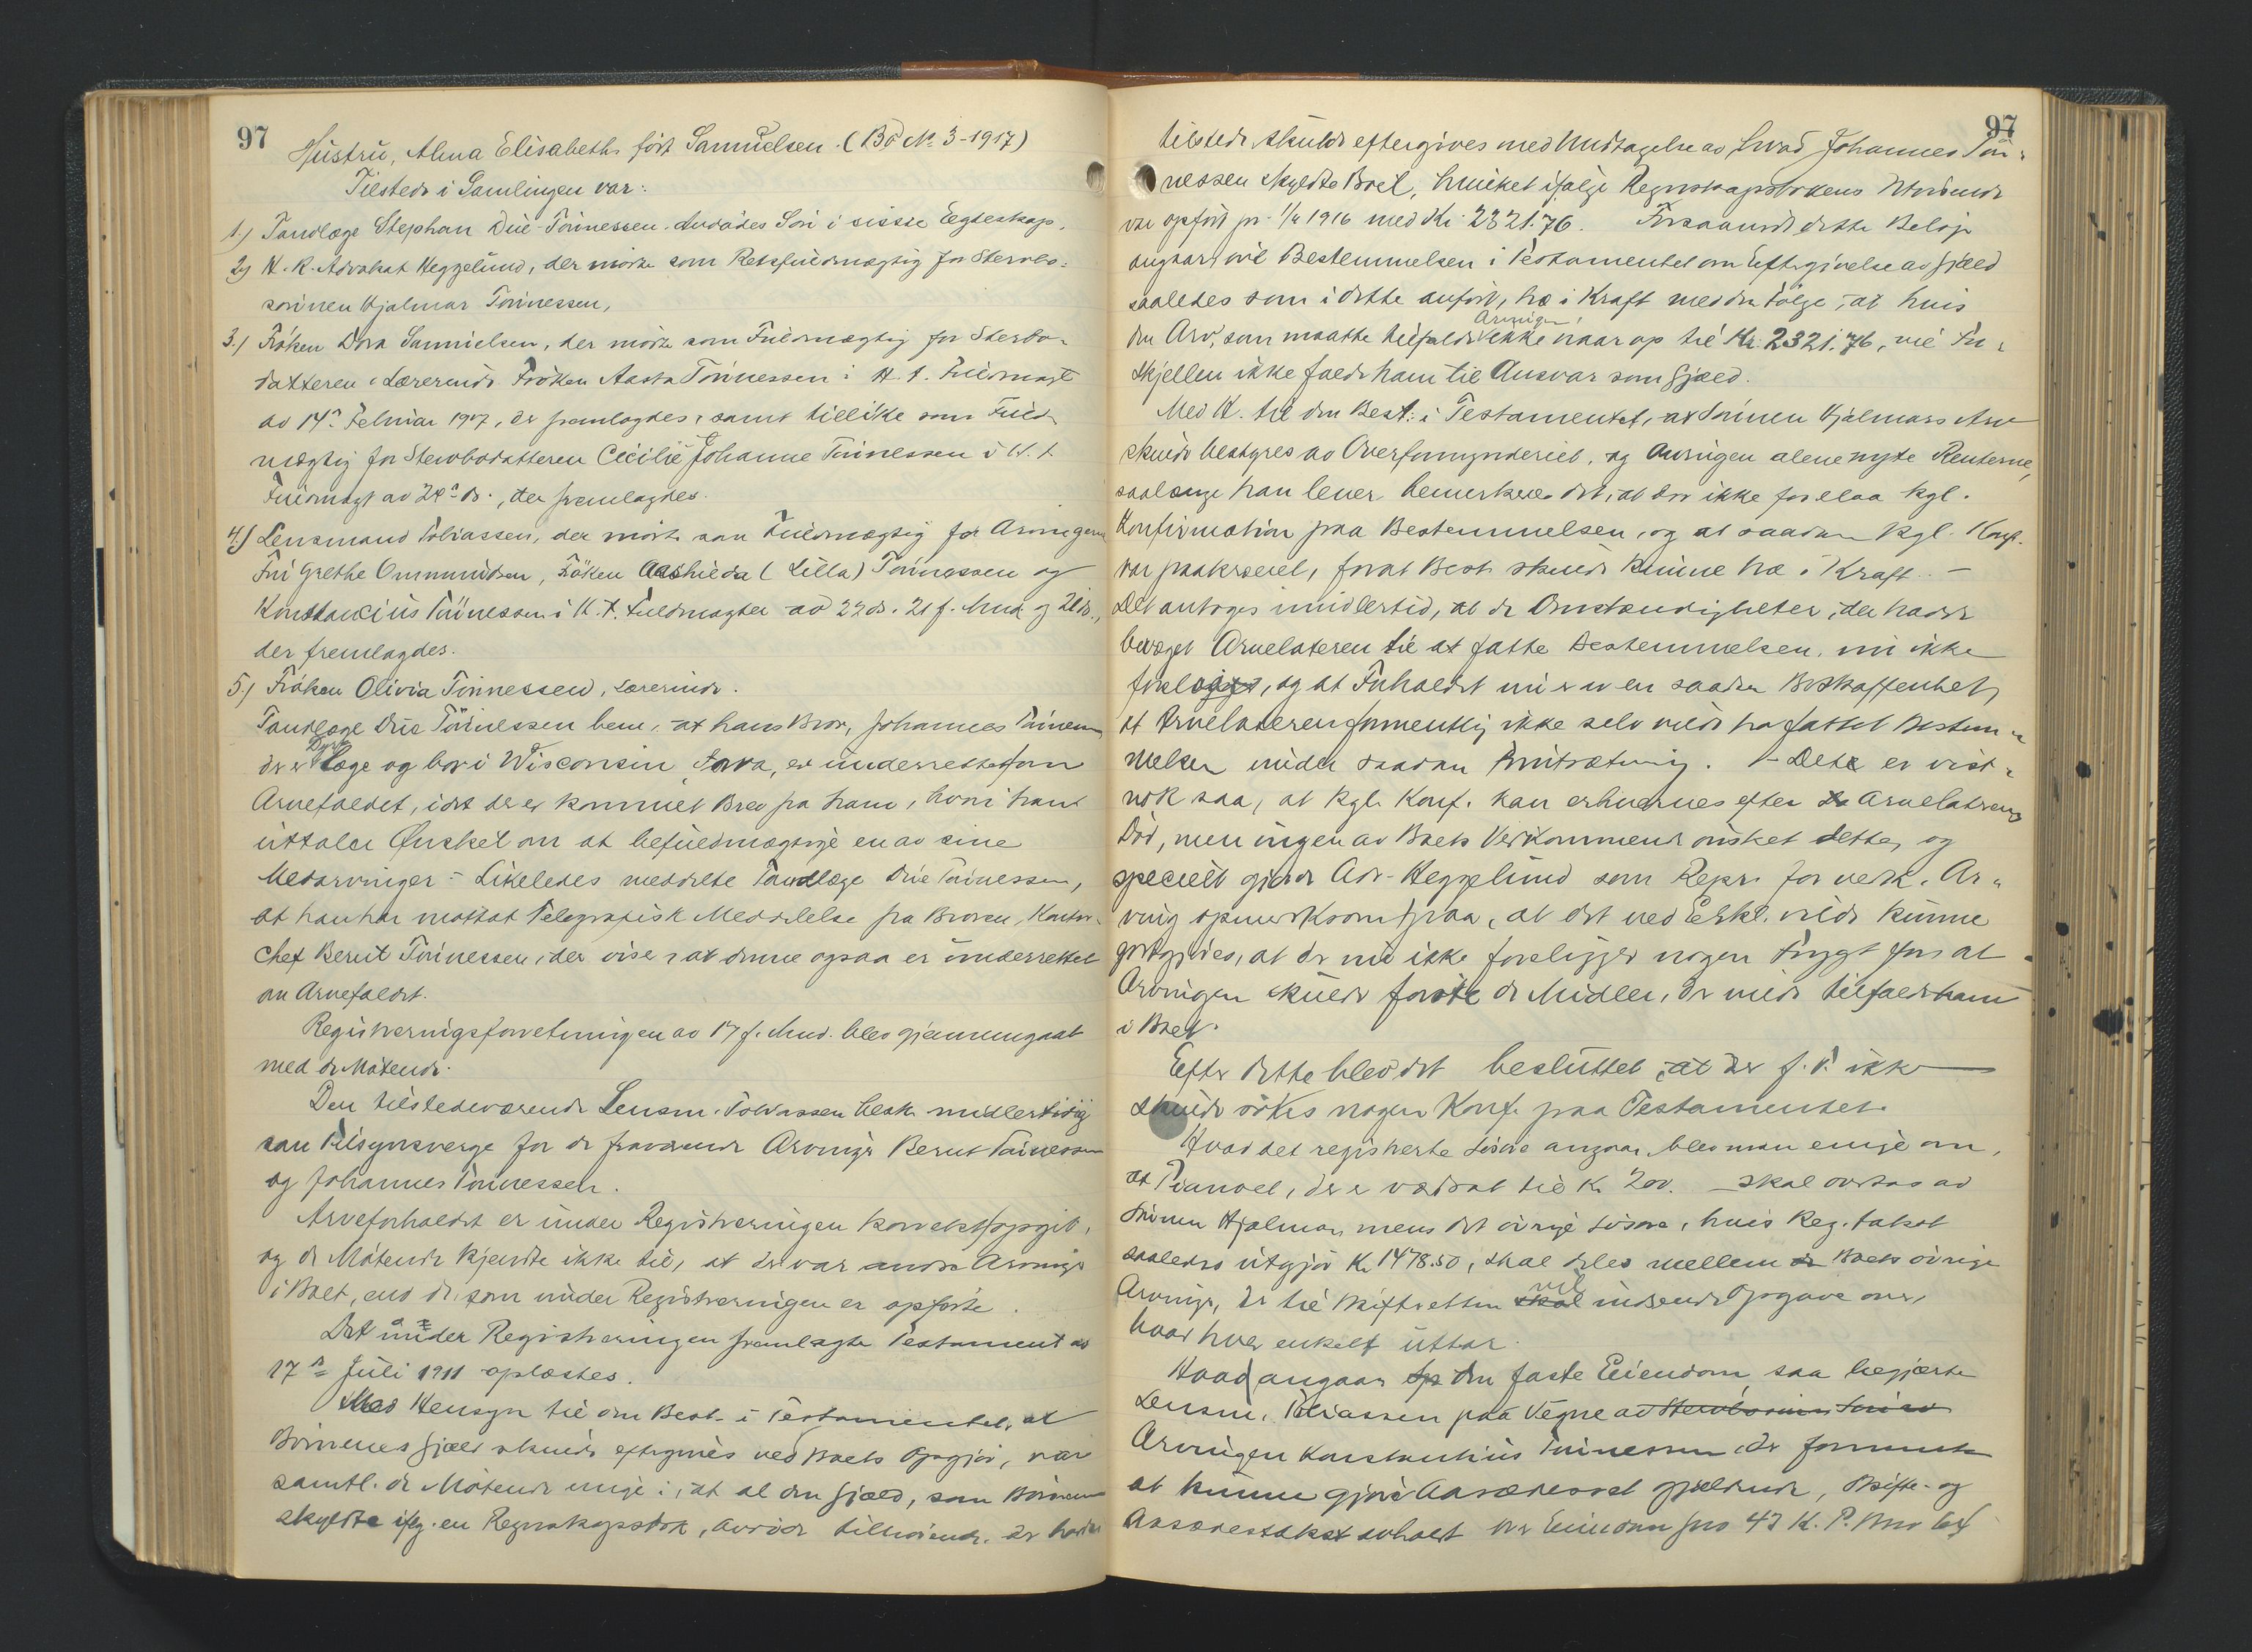 97
Hustru, Alma Elisabeth født Samuelsen. (Bo № 3-1917)
Tilstede i Samlingen var:
1.) Tandlæge Stephan Due-Tönnessen. Avdødes Søn i sidste Egteskap.
2) H.R. Advokat Heggelund, der mötte som Retsfuldmægtig for Stervbo-
sønnen Hjalmar Tönnessen,
3.) Fröken Dora Samuelsen, der mötte som Fuldmægtig for Stervbo-
datteren, Lærerinde Fröken Aasta Tönnessen i H. t. Fuldmagt
av 14n Februar 1917, der fremlagdes, samt tillike som Fuld-
mægtig for Stervbodatteren Cecilie Johanne Tönnessen i H. t.
Fuldmagt av 24n ds., der fremlagdes.
4.) Lensmand Tobiassen, der mötte som Fuldmægtig for Arvingerne
Fru Grethe Ommundsen, Fröken Aashilda (Lilla) Tönnessen og
Konstancius Tönnessen i H. t. Fuldmagter av 22 ds. 21 f. Mnd. og 21 ds.,
der fremlagdes.
5.) Fröken Olivia Tönnessen, Lærerinde.
Tandlæge Due Tönnessen bem. at hans Bror, Johannes Tönnessen
der er Dyrlæge og bor i Wisconsin, er underrettet om
Arvefaldet, idet der er kommet Brev fra ham, hvori han
uttaler Ønsket om at befuldmægtige en av sine
Medarvinger - Likeledes meddelte Tandlæge Due Tönnessen,
at han har mottat Telegrafisk Meddelelse fra Broren, Kontor-
chef Berent Tönnessen, der viser, at denne ogsaa er underrettet
om Arvefaldet.
Registreringsforretningen av 17 f. Mnd. blev gjennemgaat
med de Mötende.
Den tilstedeværende Lensm. Tobiassen besk. midlertidig
som Tilsynsverge for de fraværende Arvinger Berent Tönnessen
og Johannes Tönnessen.
Arveforholdet er under Registreringen korrekt opgit,
og de Mötende kjendte ikke til, at der var andre Arvinger
i Boet, end de, som under Registreringen er opförte.
Det under Registreringen fremlagte Testament av
17n Juli 1911 oplæstes.
Med Hensyn til den Best. i Testamentet, at
Börnenes Gjæld skulde eftergives ved Boets Opgjör, var
samtl. de Mötende enige i, at al den Gjæld, som Börnene
skyldte iflg. en Regnskapsbok, Avdöde tilhörende, der havdes
97
tilstede skulde eftergives med Undtagelse av hvad Johannes Tön-
nessen skyldte Boet, hvilket ifölge Regnskapsbokens Utvisende
var opfört pr. 1/4 1916 med Kr. 2321.76. Forsaavidt dette Belöp
angaar, vil Bestemmelsen i Testamentet om Eftergivelse av Gjæld
saaledes som i dette anfört, træ i Kraft med den Fölge, at hvis
den Arv, som maatte tilfalde Arvingen, ikke naar op til Kr. 2321.76, vil For-
skjellen ikke falde ham til Ansvar som Gjæld.
Med H. til den Best: i Testamentet, at Sönnen Hjalmars Arv
skulde bestyres av Overformynderiet, og Arvingen alene nyte Renterne,
saalænge han lever, bemerkedes det, at der ikke forelaa kgl.
Konfirmation paa Bestemmelsen, og at saadan kgl. Konf.
var paakrævet, forat Best. skulde kunne træ i Kraft. -
Det antoges imidlertid, at de Omstændigheter, der havde
bevæget Arvelateren til at fatte Bestemmelsen, nu ikke
, og at Forholdet nu er av en saadan Beskaffenhet,
at Arvelateren formentlig ikke selv vilde ha fattet Bestem-
melsen under saadan . - Det er vist-
nok saa, at kgl. Konf. kan erhverves efter Arvelaterens
Död, men ingen av Boets Vedkommende önsket dette, og
specielt gjorde Adv. Heggelund som Repr. for vedk. Ar-
ving opmerksom paa, at det ved Erkl. vilde kunne
godtgjöres, at der nu ikke foreligger nogen Frygt for at
Arvingen skulde foröde de Midler, der vilde tilfalde ham
i Boet.
Efter dette blev det besluttet, at der f. t. ikke
skulde sökes nogen Konf. paa Testamentet.
Hvad det registrerte Lösöre angaar, blev man enige om,
at Pianoet, der er værdsat til Kr. 200. - skal overtas av
Sönnen Hjalmar, mens det övrige Lösöre, hvis Reg. takst
saaledes utgjör Kr. 1478.50, skal deles mellem Boets övrige
Arvinger, der til Skifteretten vil indsende Opgave over,
hvad hver enkelt uttar.
Hvad angaar den faste Eiendom, saa begjærte
Lensm. Tobiassen paa Vegne av
Arvingen Konstantius Tönnessen, der formente
at kunne gjöre Aasædesret gjældende, Skifte- og
Aasædestakst avholdt over Eiendommen